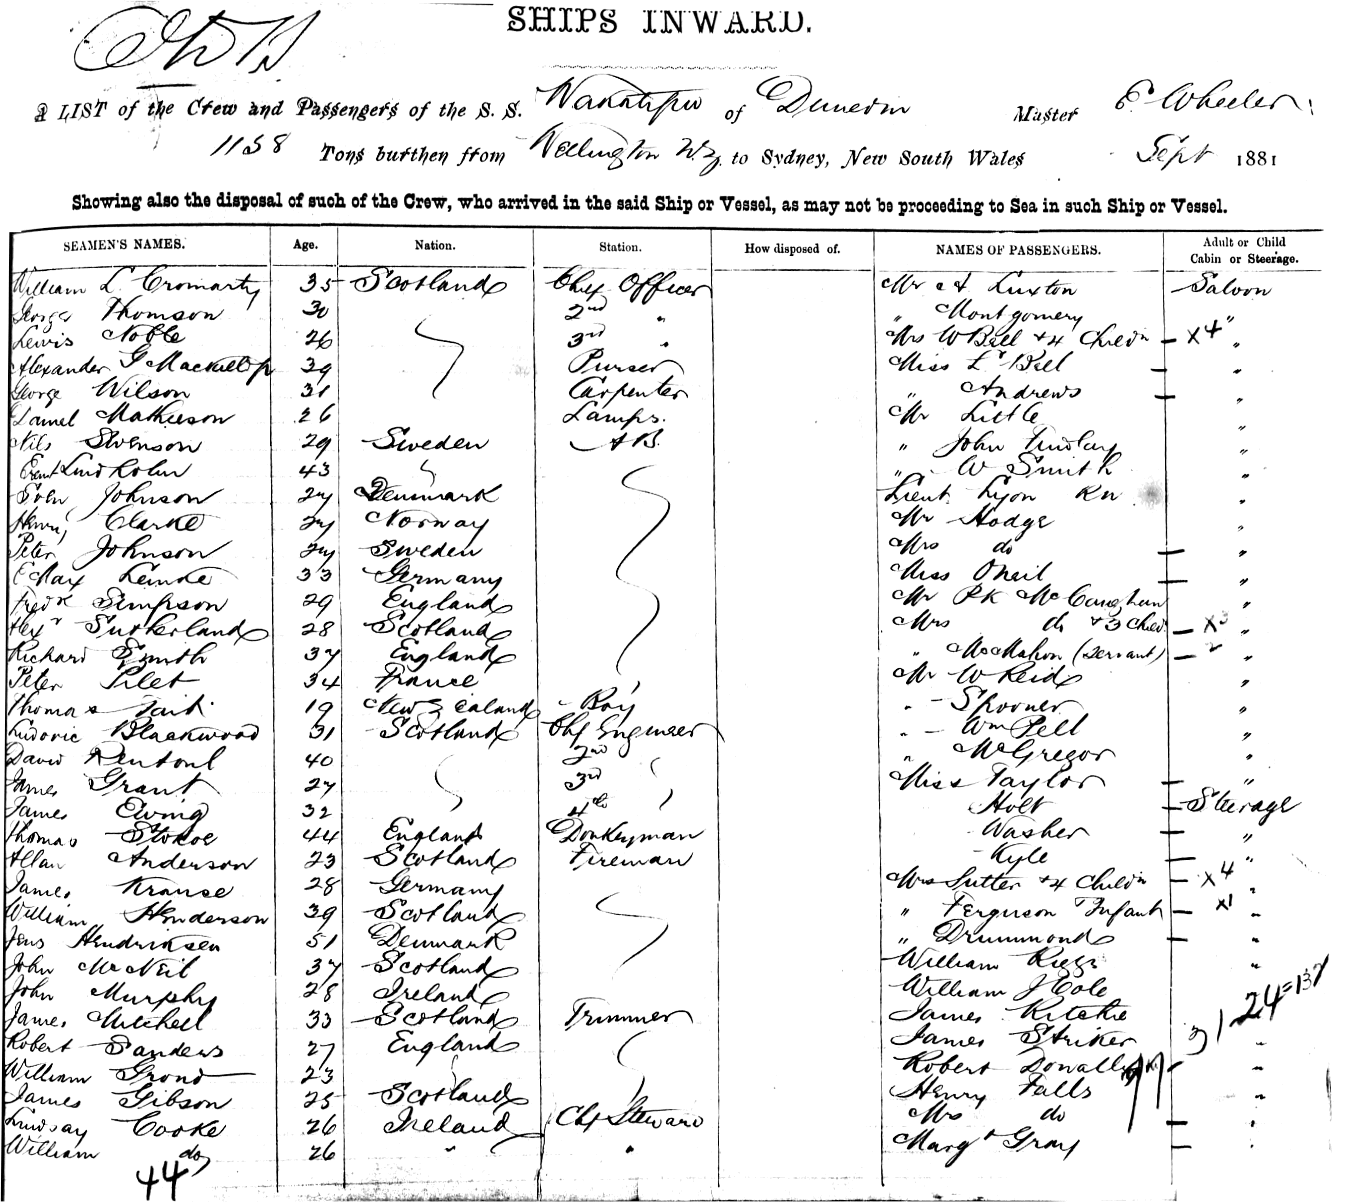 SHIPS INWARD.
A LIST of the Crew and Passengers of the S. S. Wakatipu of Dunedin Master E Wheeler
1158 Tons burthen from Wellington N.Z. to Sydney, New South Wales Sept 1881
Showing also the disposal of such of the Crew, who arrived in the said Ship or Vessel, as may not be proceeding to Sea in such Ship or Vessel.
SEAMEN'S NAMES. Age. Nation. Station. How disposed of. NAMES OF PASSENGERS. Adult or Child Cabin or Steerage.
William L Cromarty 35 Scotland Chief Officer Mr A Luxton Saloon
George Thomson 30 2nd " " Montgomery "
Lewis Noble 26 3rd " Mrs W Bell + 4 Childn — X4 "
Alexander G Mackillop 39 Purser Miss L Bell — "
George Wilson 31 Carpenter " Andrews — "
Daniel Mathieson 26 Lamps. Mr Little "
Nils Swenson 29 Sweden AB. " John Findlay "
Lindholm 43 " " W Smith "
John Johnson 27 Denmark Lieut Lyon RN "
Henry Clarke 27 Norway Mr Hodge "
Peter Johnson 27 Sweden Mrs do — "
Max Lemke 33 Germany Miss O'Neil — "
Fredk Simpson 29 England Mr P K McCaughan "
Alexr Sutherland 28 Scotland Mrs do + 3 Child — X3 "
Richard Smith 37 England " McMahon (Servant) — "
Peter Pilet 34 France Mr W Reid "
Thomas Tait 19 New Zealand Boy " Spooner "
Ludovic Blackwood 31 Scotland Chf Engineer " Wm Pell "
David Rentoul 40 2nd " McGregor "
James Grant 27 3rd Miss Taylor — "
James Ewing 32 4th Holt — Steerage
Thomas Stokoe 44 England Donkeyman Washer — "
Allan Anderson 23 Scotland Fireman Kyle — "
James Krause 28 Germany Mrs Sutter + 4 Childn — X4 "
William Henderson 39 Scotland " Ferguson Infant — X1 "
Jens Hendriksen 51 Denmark " Drummond — "
John McNeil 37 Scotland William Riggs "
John Murphy 28 Ireland William J Cole
James Mitchell 33 Scotland Trimmer James Ritchie
Robert Sanders 27 England James Striker "
William Grond 23 Robert Donally "
James Gibson 25 Scotland Henry Falls "
Lindsay Cooke 26 Ireland Chf Steward Mrs do — "
William do 26 " " Margt Gray — "
44